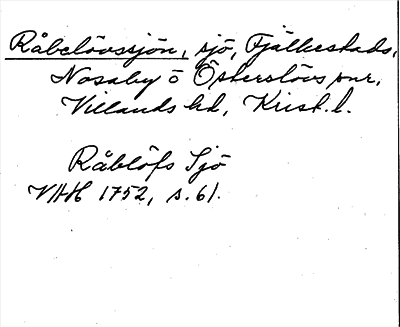 Råbelövssjön, sjö, Fjälkestads,
Nosaby o Österslövs snr,
Villands hd, Krist. l.
Råblöfs Sjö
VAH 1752, s. 61.